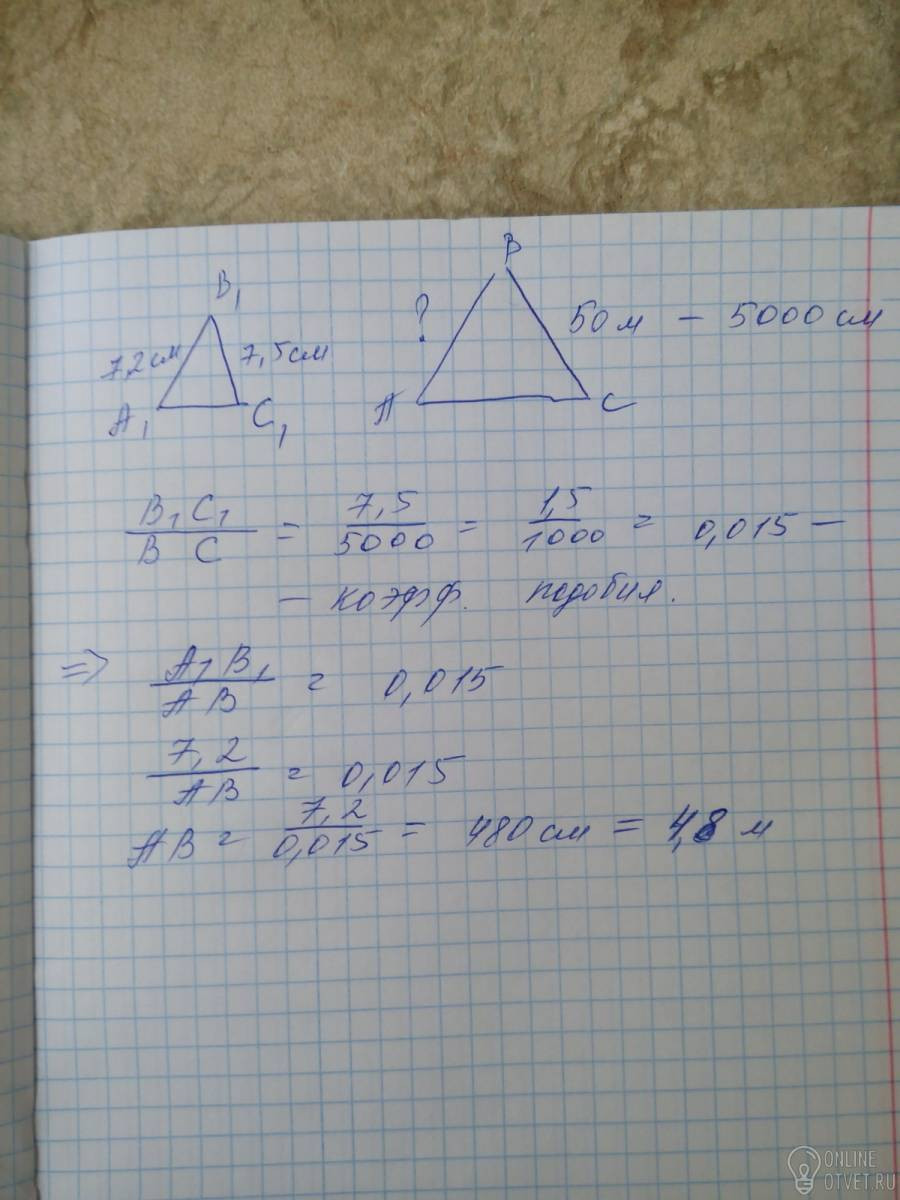 B₁ B
7,2 см 7,5 см ? 50 м – 5000 см
A₁ C₁ A C
B₁C₁/BC = 7,5/5000 = 1,5/1000 = 0,015 –
– коэфф. подобия.
=> A₁B₁/AB = 0,015
7,2/AB = 0,015
AB = 7,2/0,015 = 480 см = 4,8 м
ONLINE
OTVET.RU